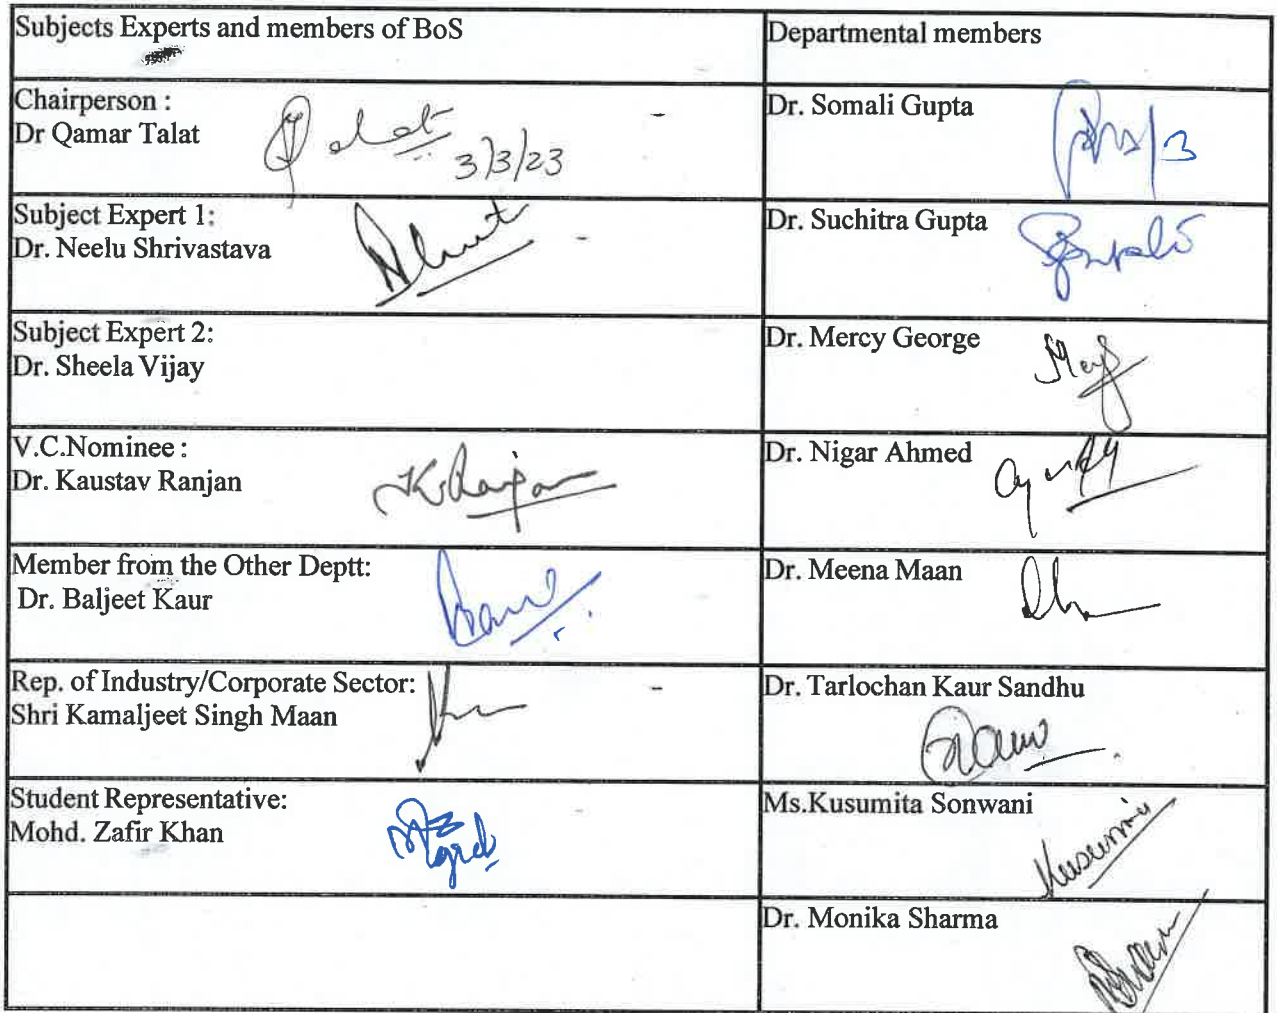 Subjects Experts and members of BoS
Departmental members
Chairperson :
Dr Qamar Talat
3/3/23
Dr. Somali Gupta
Subject Expert 1:
Dr. Neelu Shrivastava
Dr. Suchitra Gupta
Subject Expert 2:
Dr. Sheela Vijay
Dr. Mercy George
V.C.Nominee :
Dr. Kaustav Ranjan
Dr. Nigar Ahmed
Member from the Other Deptt:
Dr. Baljeet Kaur
Dr. Meena Maan
Rep. of Industry/Corporate Sector:
Shri Kamaljeet Singh Maan
Dr. Tarlochan Kaur Sandhu
Student Representative:
Mohd. Zafir Khan
Ms.Kusumita Sonwani
Dr. Monika Sharma